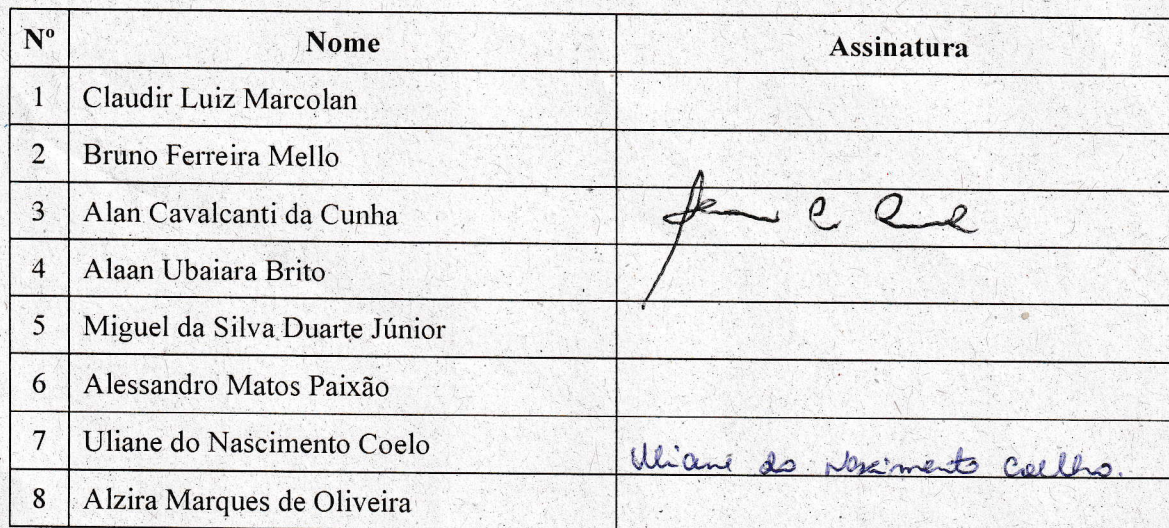 Nº Nome Assinatura
1 Claudir Luiz Marcolan
2 Bruno Ferreira Mello
3 Alan Cavalcanti da Cunha
4 Alaan Ubaiara Brito
5 Miguel da Silva Duarte Júnior
6 Alessandro Matos Paixão
7 Uliane do Nascimento Coelo Uliane do Nascimento Coelho.
8 Alzira Marques de Oliveira